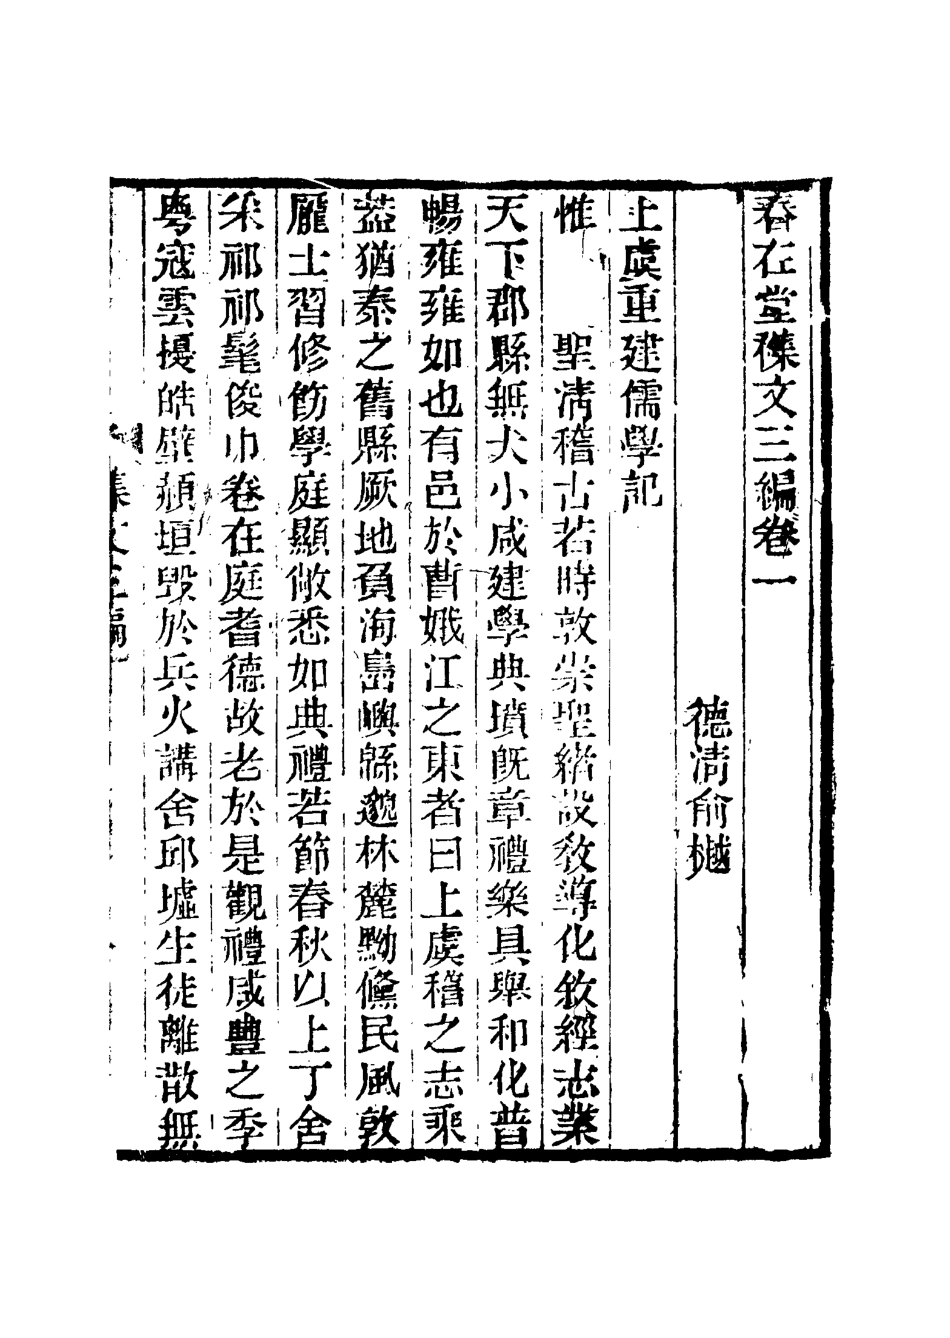 春在堂襍文三編卷一
德清俞樾
上虞重建儒學記
惟 聖清稽古若時敦崇聖緒敁敎導化敘經志業
天下郡縣無大小咸建學典墳旣章禮樂具舉和化普
暢雍雍如也有邑於曹娥江之東者曰上虞稽之志乘
葢猶秦之舊縣厥地負海島嶼緜邈林麓黝儵民風敦
龐士習修飭學庭顯敞悉如典禮若節春秋以上丁舍
采祁祁髦俊巾卷在庭耆德故老於是觀禮咸豐之季
粤寇雲擾皓壁頳垣毁於兵火講舍邱墟生徒離散無
襍文三編一